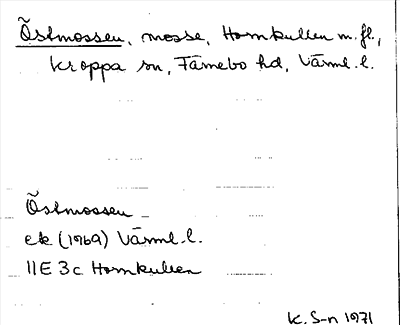 Östmossen, mosse, Hornkullen m.fl.,
Kroppa sn, Färnebo hd, Värml.l.
Östmossen
ek (1969) Värml.l.
11E 3c Hornkullen
K. S-n 1971